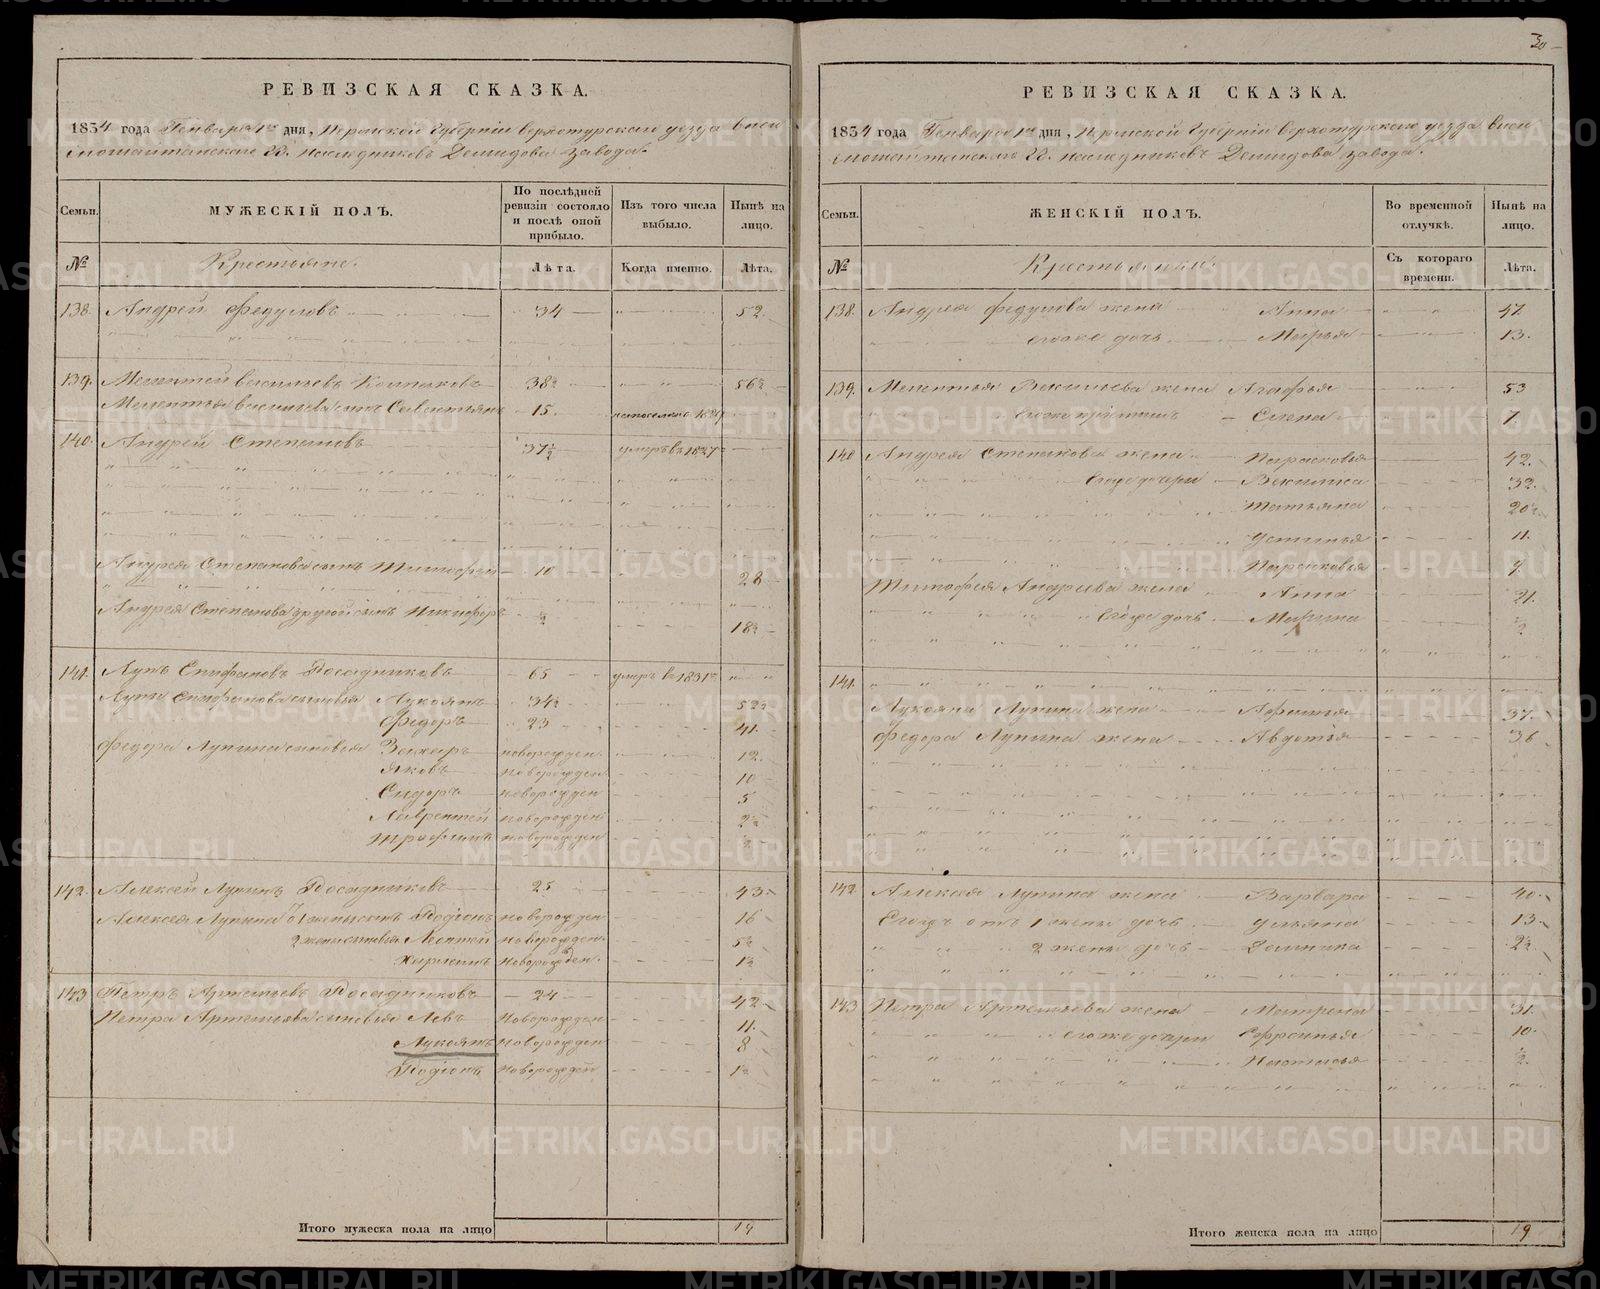 30
РЕВИЗСКАЯ СКАЗКА.
1834 года Генваря 1го дня, Пермской Губерніи Верхотурскаго уезда Виси
мошайтанскаго Гг. наследниковъ Демидова завода.
Семьи. МУЖЕСКІЙ ПОЛЪ. По послѣдней ревизіи состояло и послѣ оной прибыло. Изъ того числа выбыло. Нынѣ на лицо.
№ Крестьяне. Лѣта. Когда именно. Лѣта.
138. Андрей Федуловъ 34 52
139. Мелентей Васильевъ Колпаковъ 38½ 56½
Мелентья Васильева сынъ Савентьянъ 15. 1829
140. Андрей Степановъ 37½ умеръ въ 1827
Андрея Степанова сынъ Тимофей 10 28
Андрея Степанова другой сынъ Никифоръ ½ 18½
141. Лупъ Епифановъ Посадниковъ 65 умеръ въ 1831
Лупа Епифанова сыновья Лукоянъ 34½ 52½
Федоръ 23 41.
Федора Лупина сыновья Захаръ новорожден. 12.
Яковъ новорожден 10
Сидоръ новорожден 5
Лаврентей новорожден 2½
Трофимъ новорожден ½
142. Алексей Лупинъ Посадниковъ 25 43
Алексея Лупина отъ 1 жены сынъ Родіонъ новорожден 16
2 жены сыновья Леонтей новорожден. 5½
Харламъ новорожден. 1½
143 Петръ Артемьевъ Посадниковъ 24 42
Петра Артемьева сыновья Левъ новорожден 11.
Лукоянъ новорожден 8
Родіонъ новорожден 1½
Итого мужеска пола на лицо 19
РЕВИЗСКАЯ СКАЗКА.
1834 года Генваря 1го дня, Пермской Губерніи Верхотурскаго уезда Виси
мошайтанскаго Гг. наследниковъ Демидова завода.
Семьи. ЖЕНСКІЙ ПОЛЪ. Во временной отлучкѣ. Нынѣ на лицо.
№ Крестьянки. Съ котораго времени. Лѣта.
138. Андрея Федулова жена Анна 47
егоже дочь Марья 13.
139. Мелентья Васильева жена Агафья 53
Елена 7.
140 Андрея Степанова жена Парасковья 42.
Егоже дочери Василиса 32.
Татьяна 20
Устинья 11.
Парасковья 9
Тимофея Андреева жена Анна 21.
Егоже дочь Марина ½
141.
Лукояна Лупина жена Афросинья 37.
Федора Лупина жена Авдотья 36
142 Алексея Лупина жена Варвара 40.
Егожъ отъ 1 жены дочь Ульяна 13.
2 жены дочь Домника 2½
143 Петра Артемьева жена Матрена 31.
егоже дочери Ефросинья 10.
Настасья ½
Итого женска пола на лицо 19
METRIKI.GASO-URAL.RU